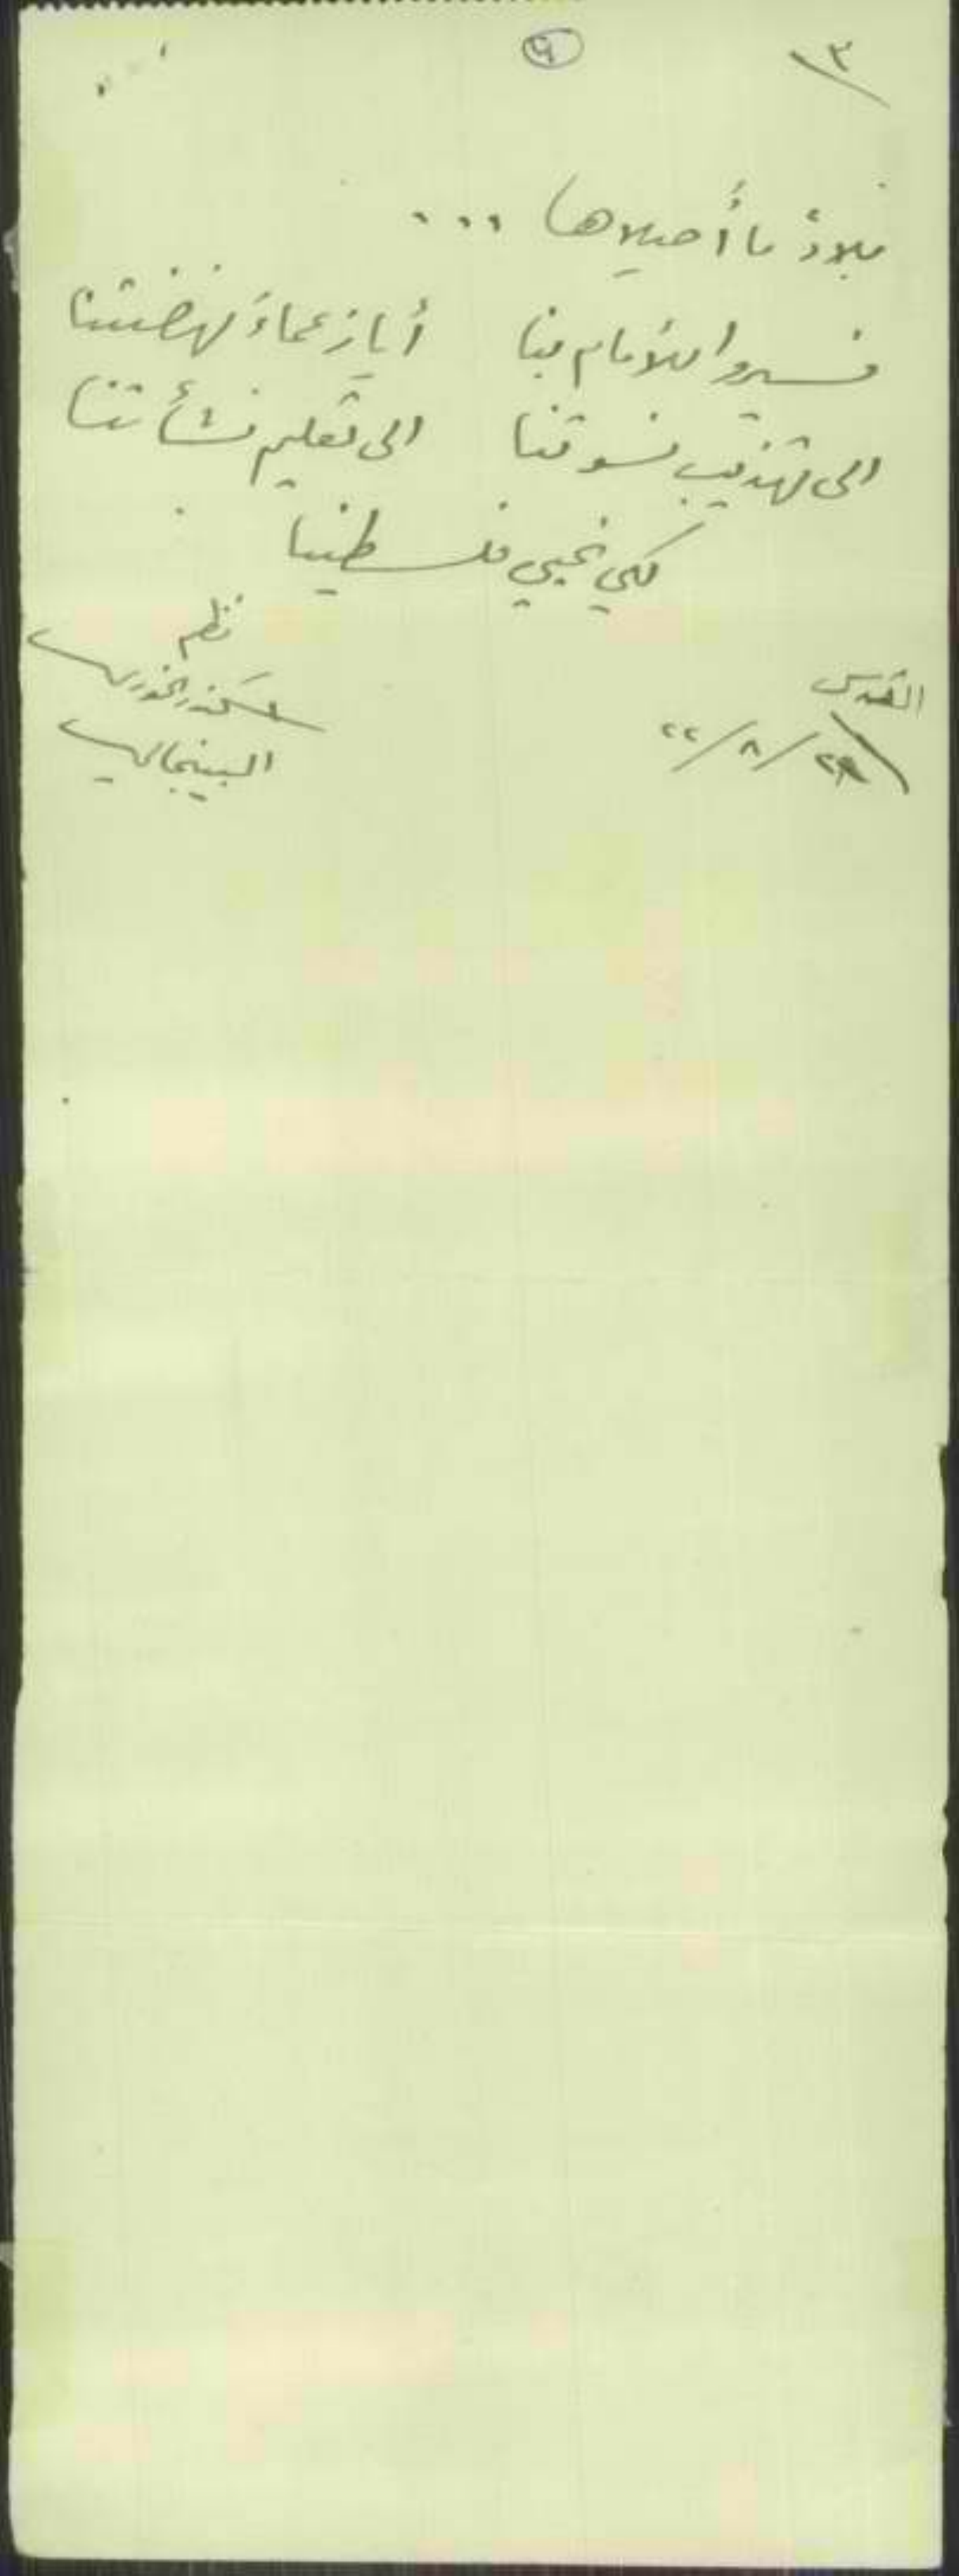 ٣
بلادٌ ما أُحيلاها ...
فسيروا للأمام بنا أيا زعماءَ نهضتنا
الى تهذيب نسوتنا الى تعليم نشأتنا
لكي نحيي فلسطينا
نظم
اسكندر الخوري
البيتجالي
القدس
٢٢/٨/